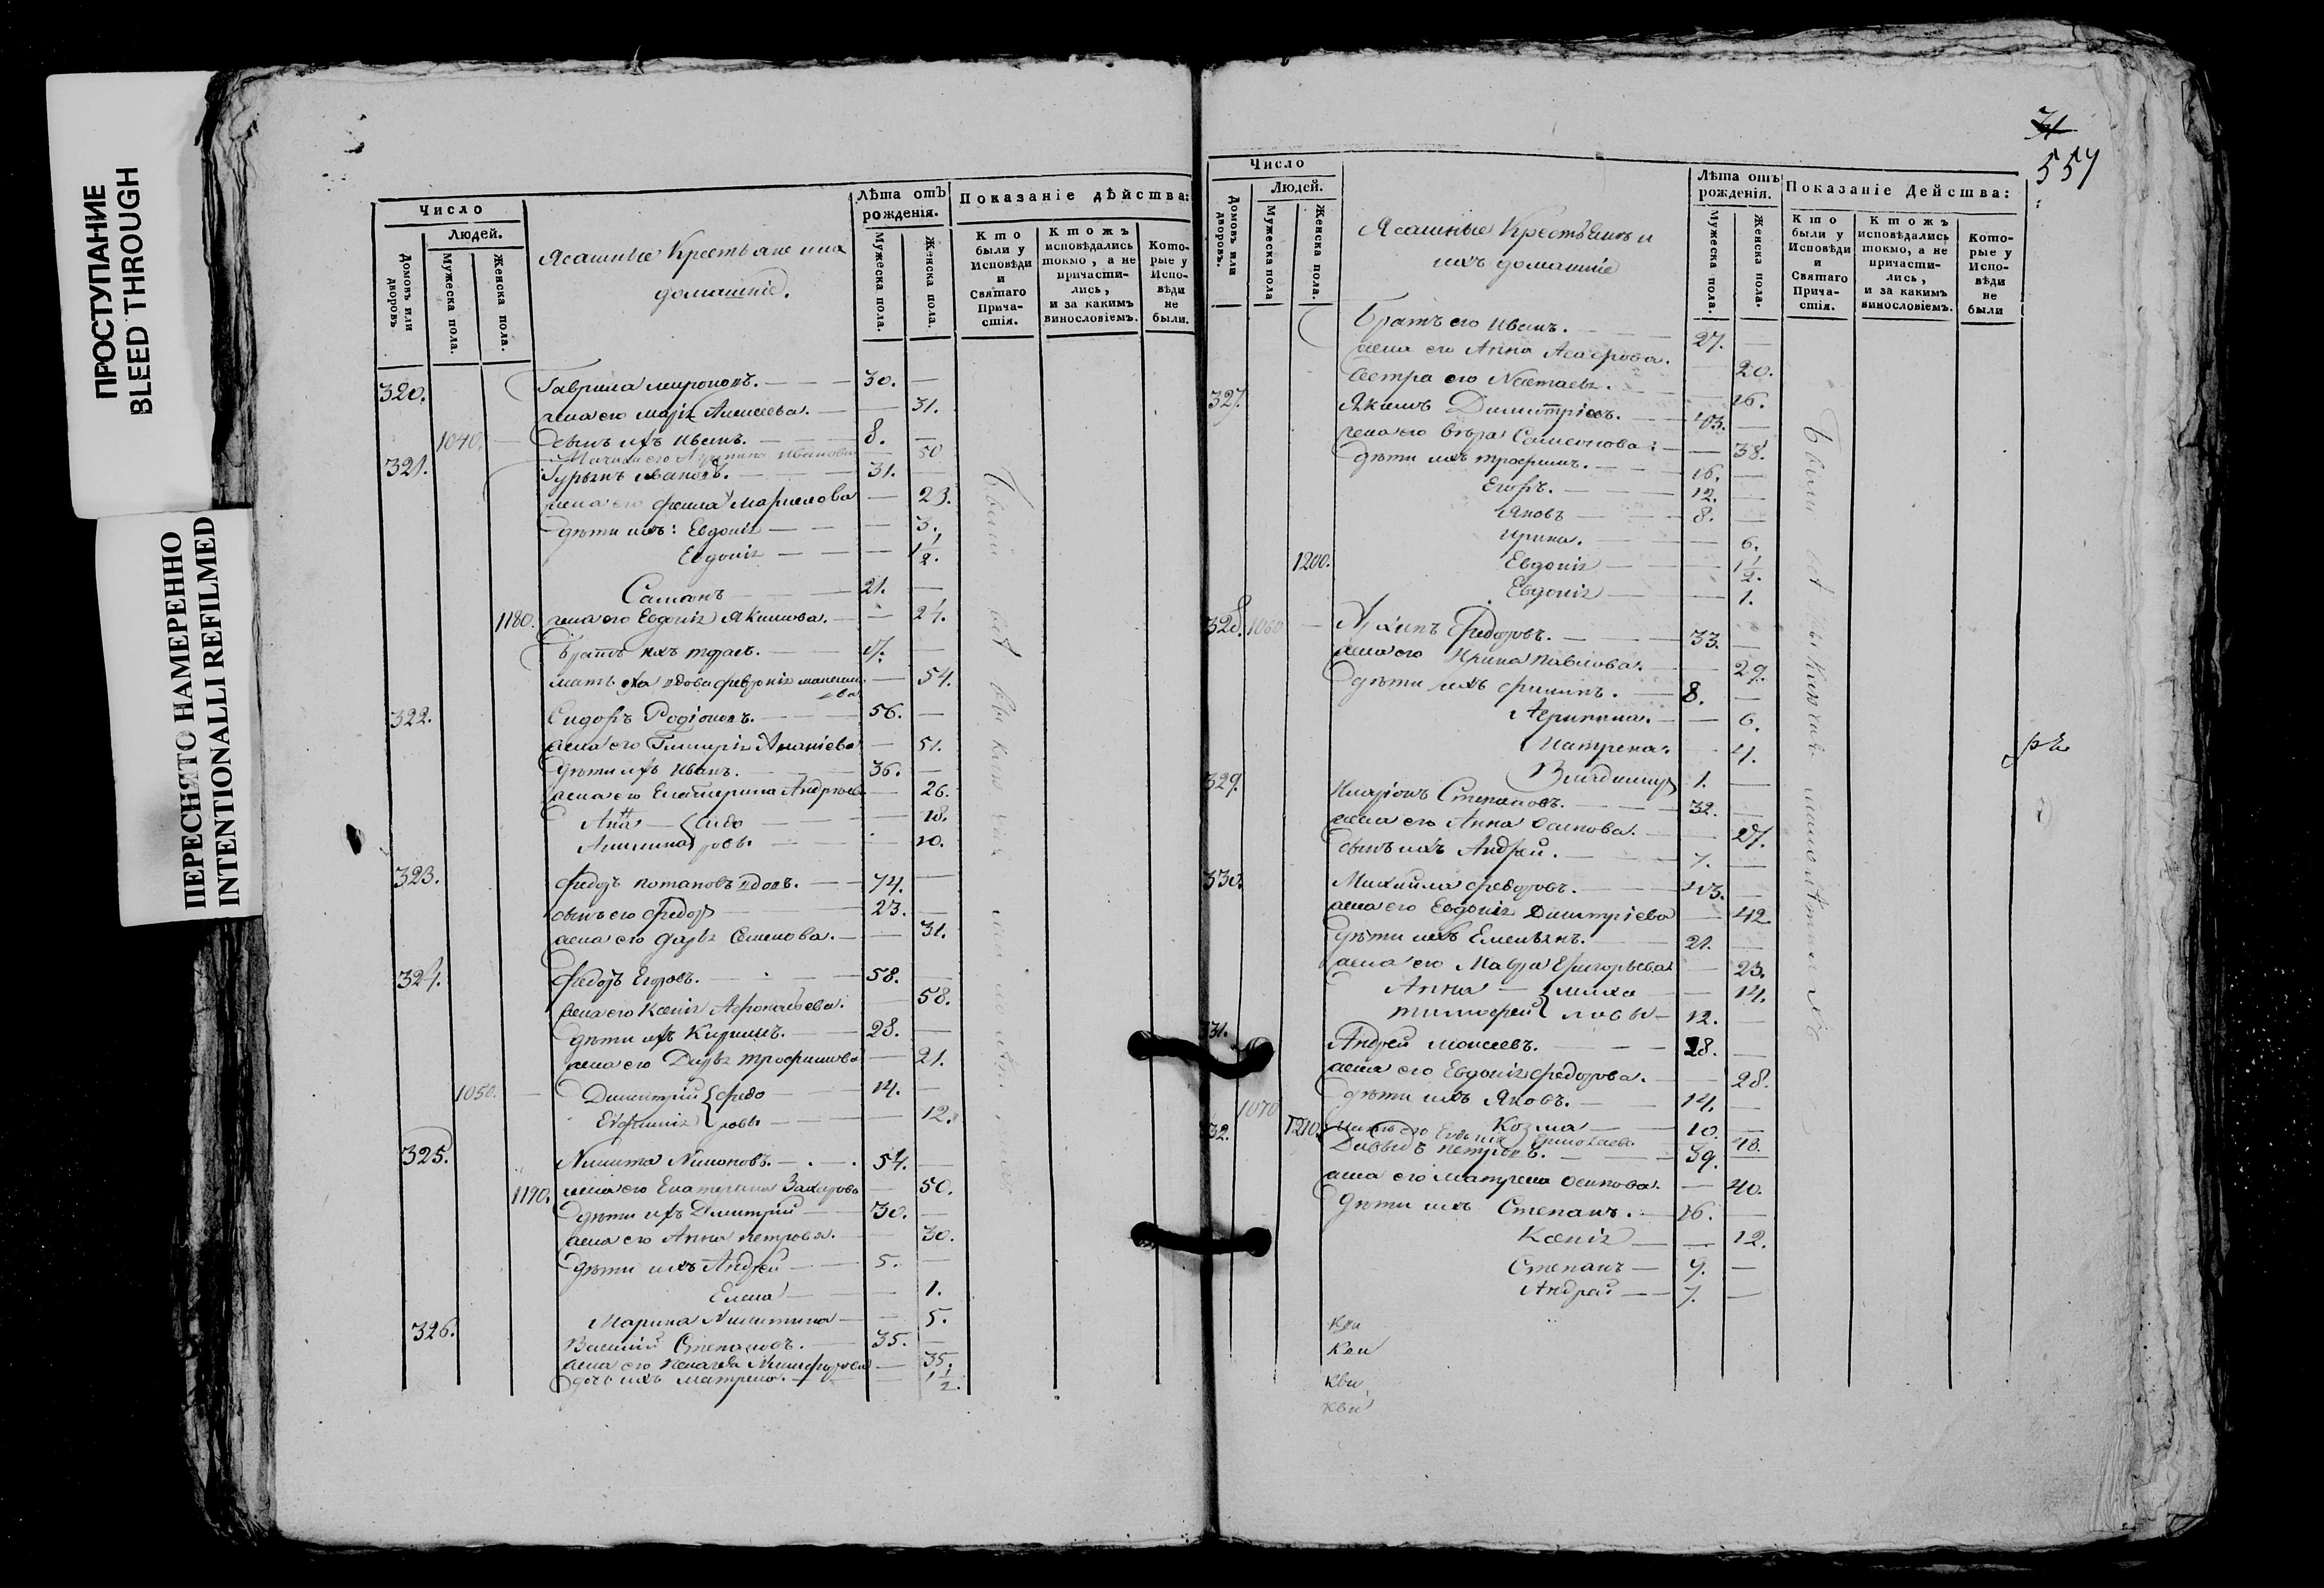 ПРОСТУПАНИЕ
BLEED THROUGH
ПЕРЕСНЯТО НАМЕРЕННО
INTENTIONALLI REFILMED
Число
Людей.
Домовъ или дворовъ
Мужеска пола.
Женска пола.
Ясашные Крестьяне и их
домашніе.
Лѣта отъ рожденія.
Мужеска пола.
Женска пола.
Показаніе дѣйства:
Кто были у Исповѣди и Святаго Прича-стія.
Ктожъ исповѣдались токмо, а не причасти-лись, и за какимъ винословіемъ.
Кото-рые у Испо-вѣди не были.
320. Гаврила Мироновъ. 30.
жена его Марія Алексеева. 31.
1040. сынъ ихъ Иванъ. 8.
Ивановна 50
321. Гурьянъ Ивановъ. 31.
жена его 23.
дѣти ихъ: Евдокія 3.
Евдокія 1 1/2.
Самонъ 21.
1180. жена его Евдокія Якимова. 24.
братъ ихъ 17.
мать их вдова Февронія 54.
322. Сидоръ Родіоновъ. 56.
жена его Гликерія Ананіева 51.
дѣти ихъ Иванъ. 36.
жена его Екатерина Андреева 26.
Анна 18.
Акилина Сидоровы 10.
323. Федоръ Потаповъ вдовъ. 74.
сынъ его Федоръ 23.
жена его Дарья Семенова. 31.
324. Федоръ Егоровъ. 58.
жена его Ксенія Афонасьева. 58.
дѣти ихъ Кирилъ. 28.
жена его Дарья Трофимова 21.
1050. Димитрій 14.
Евфимія Федоровы 12.
325. Никита Никоновъ. 54.
1190. жена его Екатерина Захарова 50.
дѣти ихъ Дмитрій 30.
жена его Анна Петрова. 30.
дѣти ихъ Андрей 5.
Елена 1.
Марина Никитина 5.
326. Василій Степановъ. 35.
жена его Пелагея Никифорова 35.
дочь ихъ Матрена. 1 1/2.
Были
31
557
Число
Людей.
Домовъ или дворовъ.
Мужеска пола
Женска пола.
Ясашные Крестьяне и
ихъ домашніе
Лѣта отъ рожденія.
Мужеска пола.
Женска пола.
Показаніе Дейсшва:
Кто были у Исповѣди и Святаго Прича-стія.
Ктожъ исповѣдались токмо, а не причасти-лись, и за какимъ винословіемъ.
Кото-рые у Испо-вѣди не были
Братъ его Иванъ. 27.
жена его Анна 20.
Сестра его 16.
327. Якимъ Димитріевъ. 43.
жена его Вѣра Самсонова: 38.
дѣти ихъ Трофимъ. 16.
Егоръ. 12.
Яковъ 8.
Ирина. 6.
1200. Евдокія 1 1/2.
Евдокія 1.
328. 1060 Архипъ Федоровъ. 33.
жена его Ирина Павлова. 29.
дѣти ихъ Филипъ. 8.
Агрипина. 6.
Матрена. 4.
Владимиръ 1.
329. Иларіонъ Степановъ. 32.
жена его Анна Осипова. 27.
сынъ ихъ Андрей. 7.
330. Михайла Федоровъ. 43.
жена его Евдокія Димитріева 42
дѣти ихъ Емельянъ. 21.
жена его Мавра Григорьева 23.
Анна 14.
Тимофей Михайловы 12.
331. Андрей Моисеевъ. 28.
жена его Евдокія Федорова. 28.
дѣти ихъ Яковъ. 14.
1070 Козма 10.
1210. Ермолаева 48.
332. Давыдъ Петровъ. 39.
жена его Матрена Осипова. 40.
дѣти ихъ Степанъ. 16.
Ксенія 12.
Степанъ 9.
Андрей 7.
Были